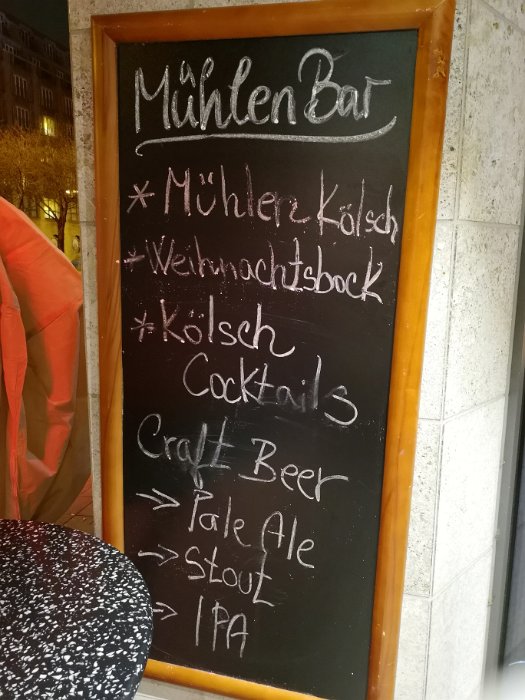 Mühlen Bar
* Mühlen Kölsch
* Weihnachtsbock
* Kölsch
Cocktails
Craft Beer
→ Pale Ale
→ Stout
→ IPA